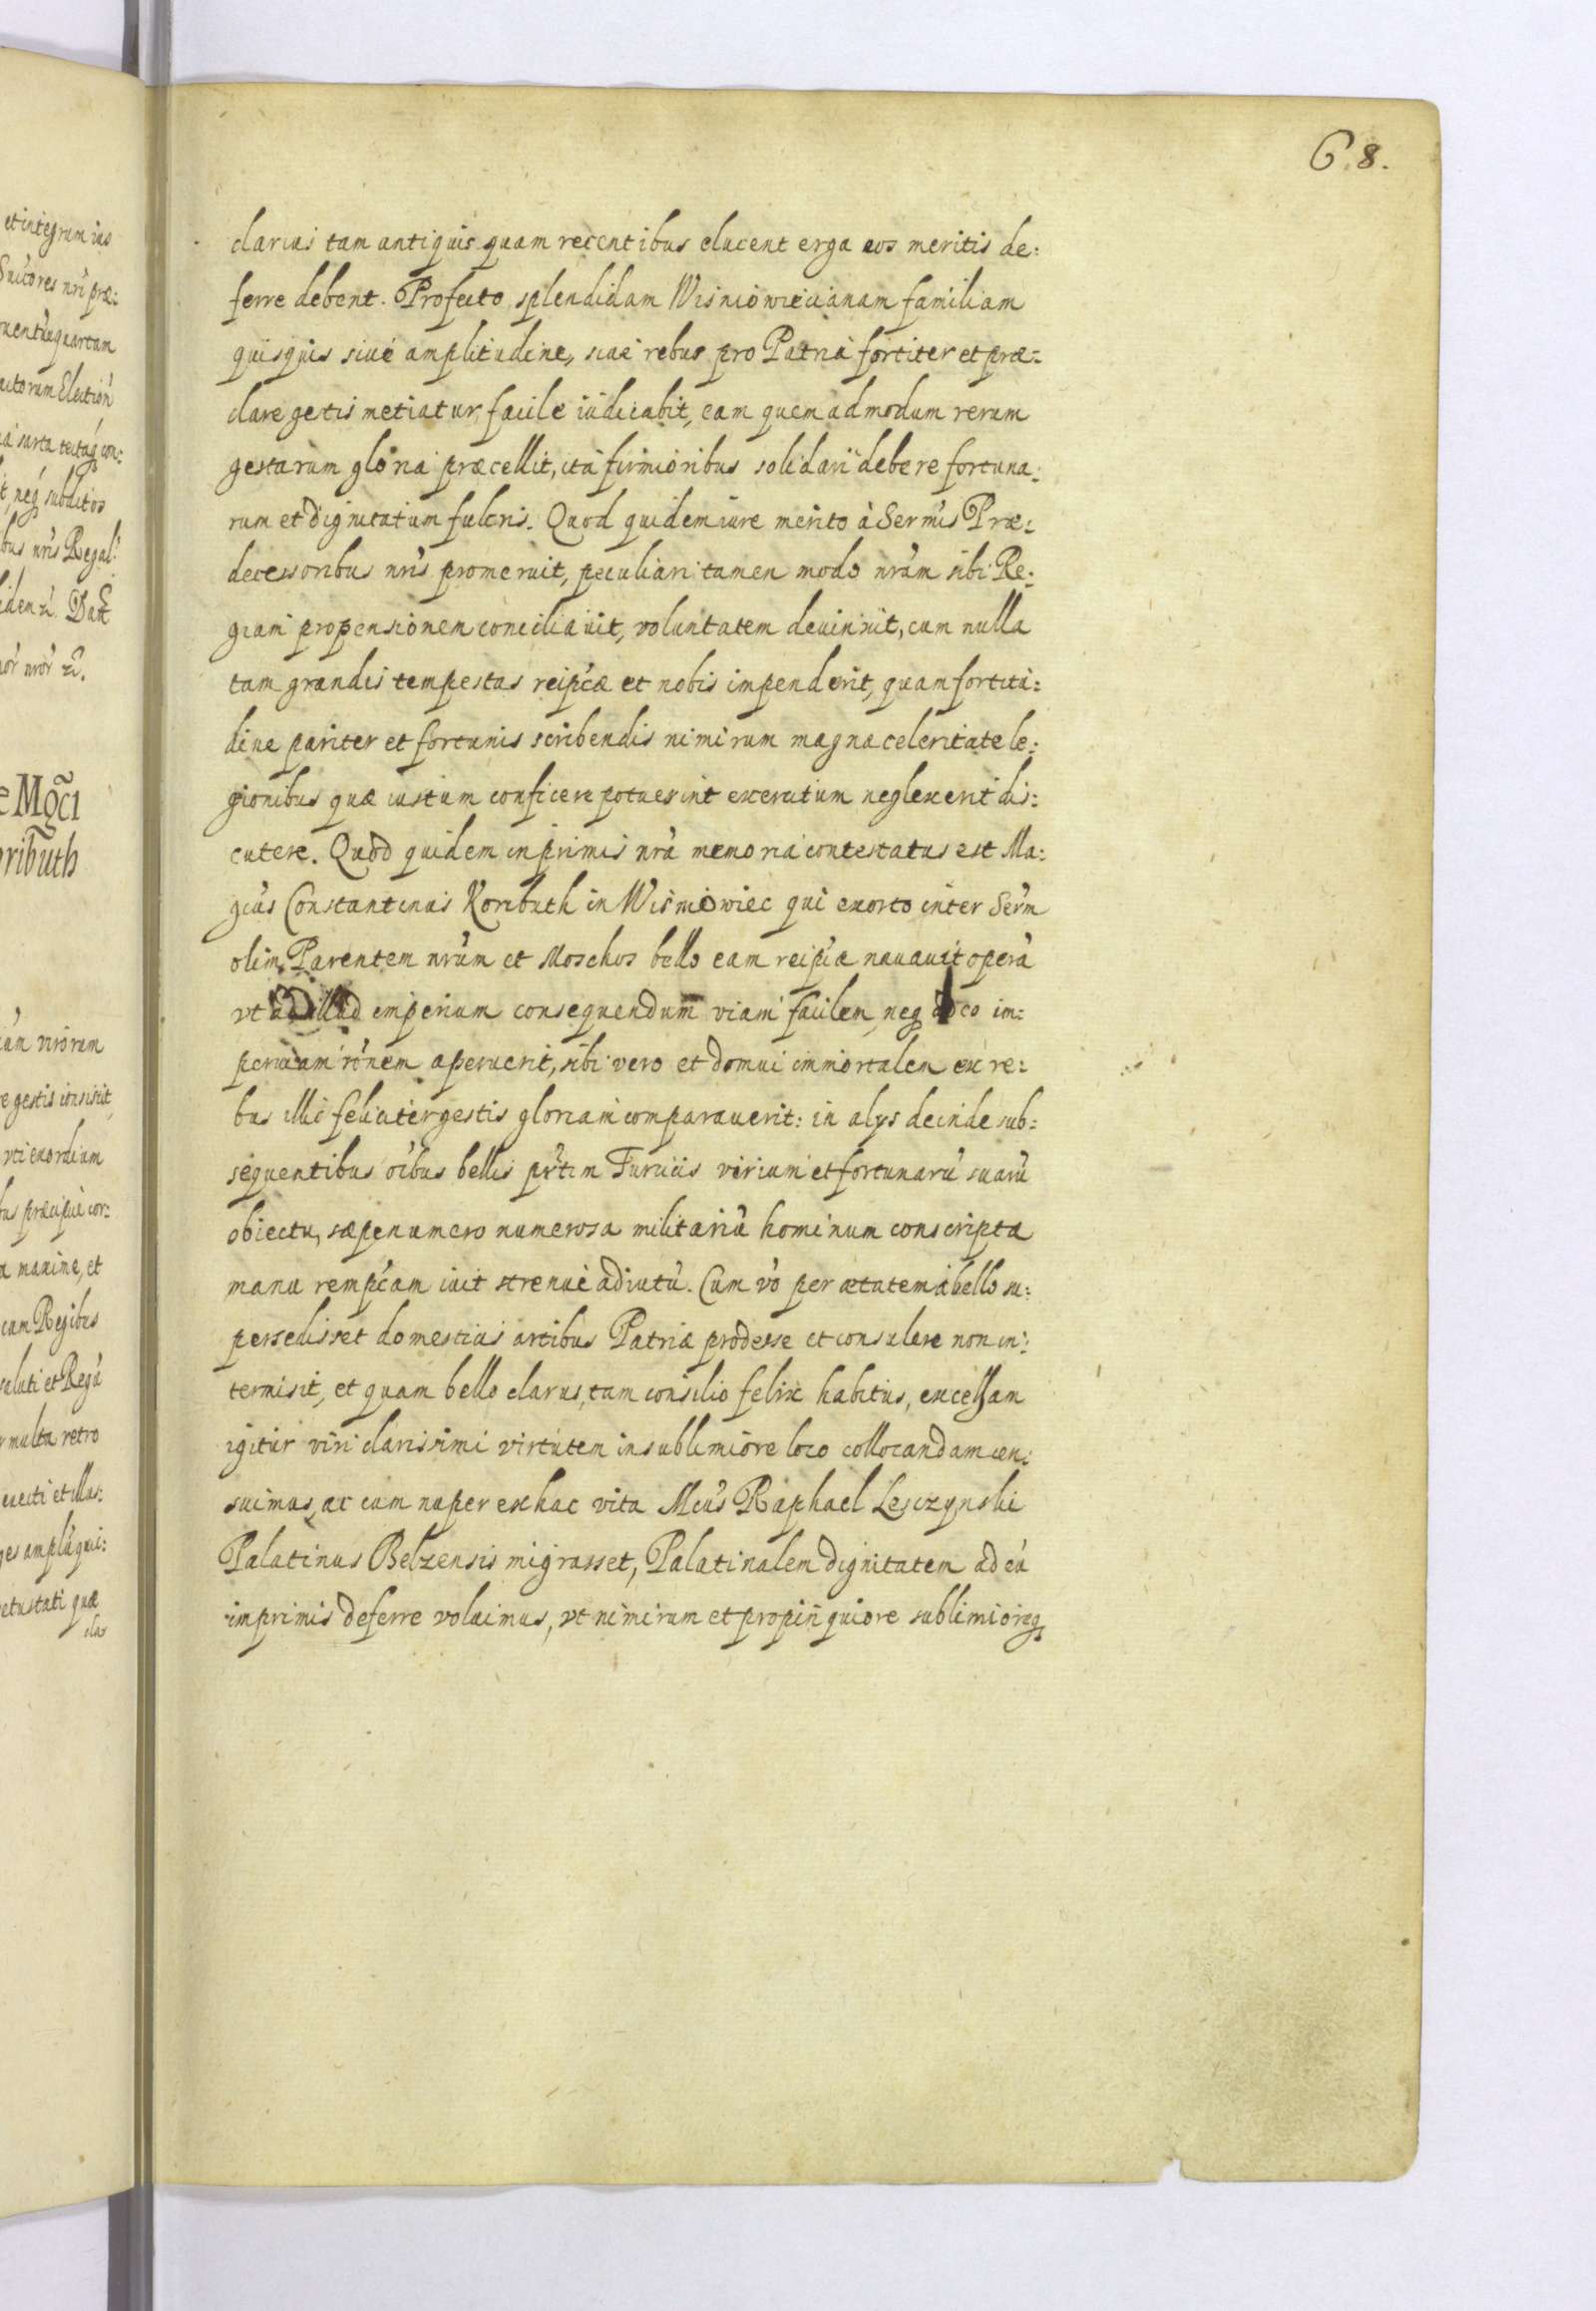 68.
clarius tam antiquis quam recentibus elucent erga eos meritis de:
ferre debent. Profecto splendidam Wisniowiecianam familiam
quisquis siue amplitudine, siue rebus pro Patria fortiter et præ:
clare gestis metiatur, facile iudicabit, eam quemadmodum rerum
gestarum gloria præcellit, ita firmioribus solidari debere fortuna:
rum et dignitatum fulcris. Quod quidem iure merito à Sermis Præ:
decessoribus nris promeruit, peculiari tamen modo nram sibi Re:
giam propensionem conciliauit, voluntatem deuinxit, cum nulla
tam grandis tempestas reipcæ et nobis impenderit, quam fortitu:
dine pariter et fortunis scribendis nimirum magna celeritate le:
gionibus quæ iustum conficere potuerint exercitum neglexerit dis:
cutere. Quod quidem inprimis nra memoria contestatus est Ma:
gcus Constantinus Koributh in Wisniowiec qui exorto inter Serm
olim Parentem nrum et Moschos bello eam reipcæ nauauit operã
vt ad illud imperium consequendum viam facilem, neq adeo im:
peruiam rõnem aperuerit, sibi vero et domui immortalem ex re:
bus illic feliciter gestis gloriam comparauerit: in alys deinde sub:
sequentibus oibus bellis prtim Turcicis virium et fortunarũ suarũ
obiectu, sæpenumero numerosa militariũ hominum conscripta
manu rempcam iuit strenue adiutũ. Cum vo per ætatem à bello su:
persedisset domesticis artibus Patriæ prodesse et consulere non in:
termisit, et quam bello clarus, tam consilio felix habitus, excelsam
igitur viri clarissimi virtutem in sublimiore loco collocandam cen:
suimus, ac cum nuper ex hac vita Mcus Raphael Lesczynski
Palatinus Belzensis migrasset, Palatinalem dignitatem ad eũ
imprimis deferre voluimus, vt nimirum et propinquiore sublimioreq